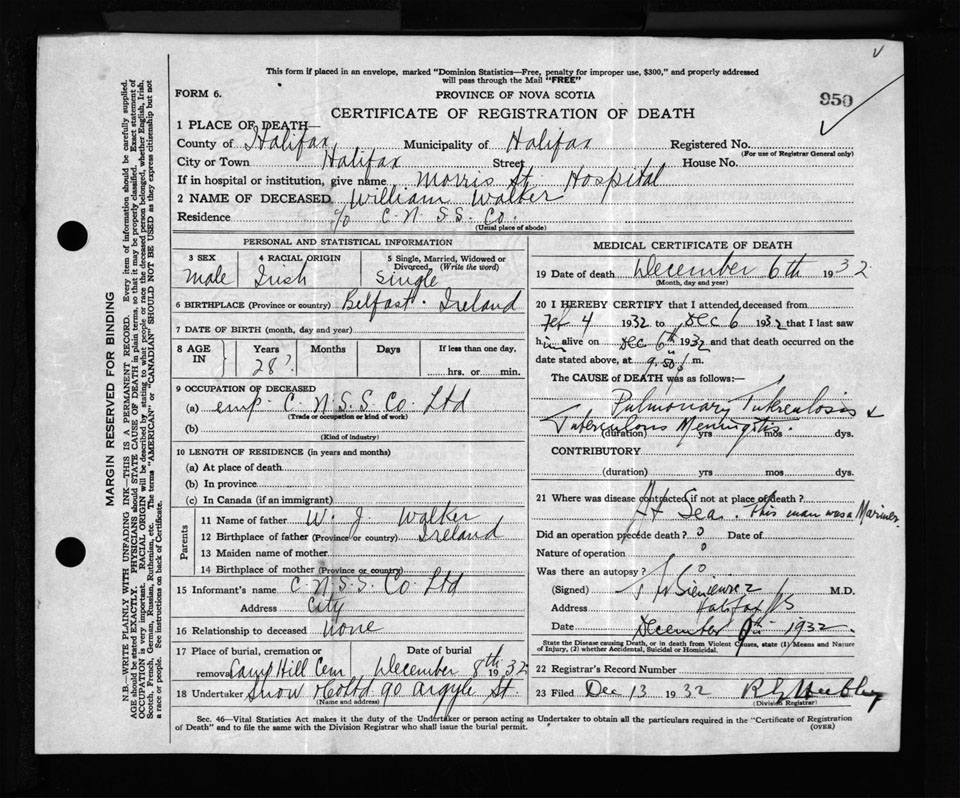 This form if placed in an envelope, marked "Dominion Statistics—Free, penalty for improper use, $300," and properly addressed
will pass through the Mail "FREE"
FORM 6.
PROVINCE OF NOVA SCOTIA
950
CERTIFICATE OF REGISTRATION OF DEATH
1 PLACE OF DEATH—
County of Halifax Municipality of Halifax Registered No.
(For use of Registrar General only)
City or Town Halifax Street House No.
If in hospital or institution, give name Morris St. Hospital
2 NAME OF DECEASED William Walker
Residence c/o C. N. S.S. Co.
(Usual place of abode)
PERSONAL AND STATISTICAL INFORMATION
3 SEX
male
4 RACIAL ORIGIN
Irish
5 Single, Married, Widowed or
Divorced (Write the word)
Single
6 BIRTHPLACE (Province or country) Belfast. Ireland
7 DATE OF BIRTH (month, day and year)
8 AGE IN
Years Months Days If less than one day,
28? hrs. or min.
9 OCCUPATION OF DECEASED
(a) emp. C. N. S.S. Co. Ltd
(Trade or occupation or kind of work)
(b)
(Kind of industry)
10 LENGTH OF RESIDENCE (in years and months)
(a) At place of death
(b) In province
(c) In Canada (if an immigrant)
Parents
11 Name of father W. J. Walker
12 Birthplace of father (Province or country) Ireland
13 Maiden name of mother
14 Birthplace of mother (Province or country)
15 Informant's name C. N. S.S. Co Ltd
Address City
16 Relationship to deceased none
17 Place of burial, cremation or Date of burial
removal Camp Hill Cem December 8th 1932
18 Undertaker Snow & Co Ltd 90 Argyle St.
(Name and address)
MEDICAL CERTIFICATE OF DEATH
19 Date of death December 6th 1932
(Month, day and year)
20 I HEREBY CERTIFY that I attended deceased from
Feb 4 1932 to Dec 6 1932 that I last saw
him alive on Dec 6th 1932 and that death occurred on the
date stated above, at 9.50 m.
The CAUSE of DEATH was as follows:—
Pulmonary Tuberculosis &
Tuberculous Meningitis.
(duration) yrs mos dys.
CONTRIBUTORY
(duration) yrs mos dys.
21 Where was disease contracted if not at place of death?
At Sea. This man was a Mariner.
Did an operation precede death? 0 Date of
Nature of operation 0
Was there an autopsy? 0
(Signed) M.D.
Address Halifax NS
Date December 1932.
State the Disease causing Death, or in death from Violent Causes, state (1) Means and Nature
of Injury, (2) whether Accidental, Suicidal or Homicidal.
22 Registrar's Record Number
23 Filed Dec 13 1932
(Division Registrar)
Sec. 46—Vital Statistics Act makes it the duty of the Undertaker or person acting as Undertaker to obtain all the particulars required in the "Certificate of Registration
of Death" and to file the same with the Division Registrar who shall issue the burial permit. (OVER)
MARGIN RESERVED FOR BINDING
N.B.—WRITE PLAINLY WITH UNFADING INK—THIS IS A PERMANENT RECORD. Every item of information should be carefully supplied.
AGE should be stated EXACTLY. PHYSICIANS should STATE CAUSE OF DEATH in plain terms, so that it may be properly classified. Exact statement of
OCCUPATION is very important. RACIAL ORIGIN will be described by stating to what people or race the deceased person belonged, whether English, Irish,
Scotch, French, German, Russian, Ruthenian, etc. The terms "AMERICAN" or "CANADIAN" SHOULD NOT BE USED as they express citizenship but not
a race or people. See instructions on back of Certificate.